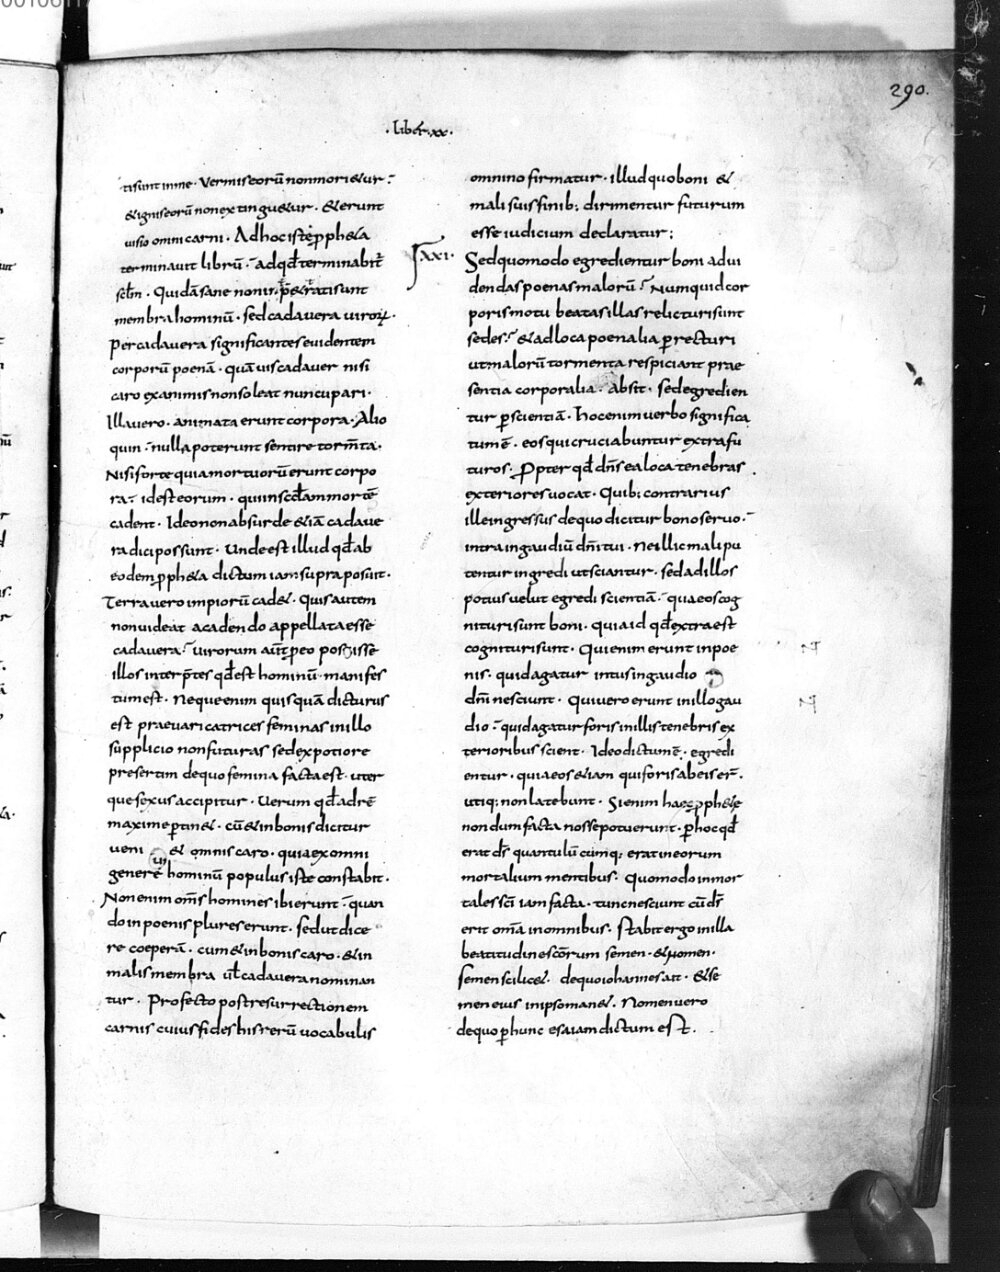 290.
· Liber · xx ·
tisunt inme · Vermis eorū non morietur ·
& ignis eorū non extinguetur · & erunt
uisio omni carni · Ad hoc iste ꝓpheta
terminauit librū · ad qđ terminabit̄
scłm · Quidā sane non
membra hominū · sed cadauera uiroꝝ ·
per cadauera significantes euidentem
corporū poenā · quāuis cadauer nisi
caro exanimis non soleat nuncupari ·
Illa uero · animata erunt corpora · Alio
quin · nulla poterunt sentire torm̄ta ·
Nisi forte quia mortuorū erunt corpo
ra · id est eorum · qui in scđam mortē
cadent · Ideo non absurde &iā cadaue
ra dici possunt · Unde est illud qđ ab
eodem ꝓpheta dictum iam supra posui ·
Terra uero impiorū cad& · Quis autem
non uideat a cadendo appellata esse
cadauera · uirorum aūt ꝓeo posuisse
illos interp̄tes qđ est hominū manifes
tum est · Neque enim quisquā dicturus
est praeuaricatrices feminas in illo
supplicio non futuras sed ex potiore
presertim de quo femina facta est · uter
que sexus accipitur · Uerum qđ ad rē
maxime ꝑtin& · cū & in bonis dicitur
ueni & omnis caro · quia ex omni
genere hominū populus iste constabit ·
Non enim om̄s homines ibi erunt · quan
do in poenis plures erunt · sed ut dice
re coeperā · cum & in bonis caro · & in
malis membra uł cadauera nominan
tur · Profecto post resurrectionem
carnis cuius fides his rerū uocabulis
omnino firmatur · illud quo boni &
mali suis finib; dirimentur futurum
esse iudicium declaratur;
XXI ·
Sed quomodo egredientur boni ad ui
dendas poenas malorū · Numquid cor
poris motu beatas illas relicturi sunt
sedes · & ad loca poenalia ꝑrecturi
ut malorū tormenta respiciant prae
sentia corporalia · Absit · sed egredien
tur ꝑ scientiā · hoc enim uerbo significa
tum ē · eos qui cruciabuntur extra fu
turos · Ꝓpter qđ dn̄s ea loca tenebras
exteriores uocat · Quib; contrarius
ille ingressus de quo dicitur bono seruo ·
intra in gaudiū dn̄i tui · Ne illic mali pu
tentur ingredi ut sciantur · sed ad illos
potius uelut egredi scientiā · qua eos cog
nituri sunt boni · quia id qđ extra est
cognituri sunt · Qui enim erunt in poe
nis · quid agatur intus in gaudio
dn̄i nesciunt · Qui uero erunt in illo gau
dio · quid agatur foris in illis tenebris ex
terioribus scient · Ideo dictum ē · egredi
entur · quia eos &iam qui foris ab eis er̄ ·
utiq; non latebunt · Si enim haec ꝓphetae
nondum facta nosse potuerunt · ꝑ hoc qđ
erat ds̄ quantulū cumq; erat in eorum
mortalium mentibus · Quomodo inmor
tales sc̄i iam facta · tunc nesciunt cū ds̄
erit om̄a in omnibus · Stabit ergo in illa
beatitudine sc̄orum semen · & nomen ·
semen scilic& · de quo iohannes ait · & se
men eius in ipso man& · Nomen uero
de quo ꝑ hunc esaiam dictum est ·